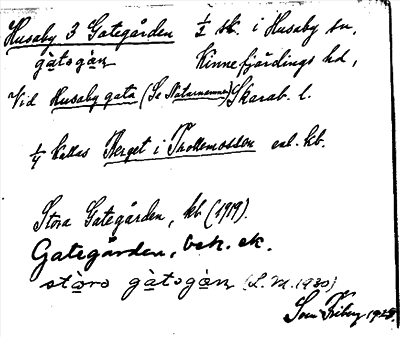 Husaby 3 Gategården 1/2 sk. i Husaby sn,
gàtogàṇ Kinnefjärdings hd,
Vid Husaby gata (Se Naturnamnen) Skarab. l.
1/4 kallas Berget i Trollemossen enl. kb.
Stora Gategården, kb (1919).
Gategården, bok. ek.
stòro gàtogàṇ (L.M. 1930)
Sven Friberg 1928.